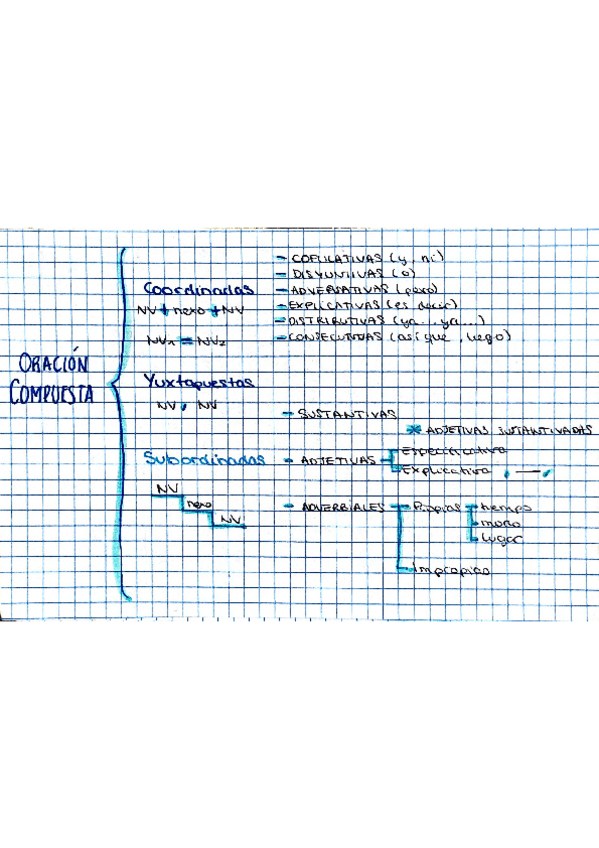 ORACIÓN
COMPUESTA
Coordinadas
NV + nexo + NV
NV₁ = NV₂
- COPULATIVAS (y, ni)
- DISYUNTIVAS (o)
- ADVERSATIVAS (pero)
- EXPLICATIVAS (es decir)
- DISTRIBUTIVAS (ya... ya...)
- CONSECUTIVAS (así que, luego)
Yuxtapuestas
NV, NV
Subordinadas
NV
nexo
NV
- SUSTANTIVAS
* ADJETIVAS SUSTANTIVADAS
- ADJETIVAS
Especificativa
Explicativa , — ,
- ADVERBIALES
Propias
tiempo
modo
lugar
Impropias